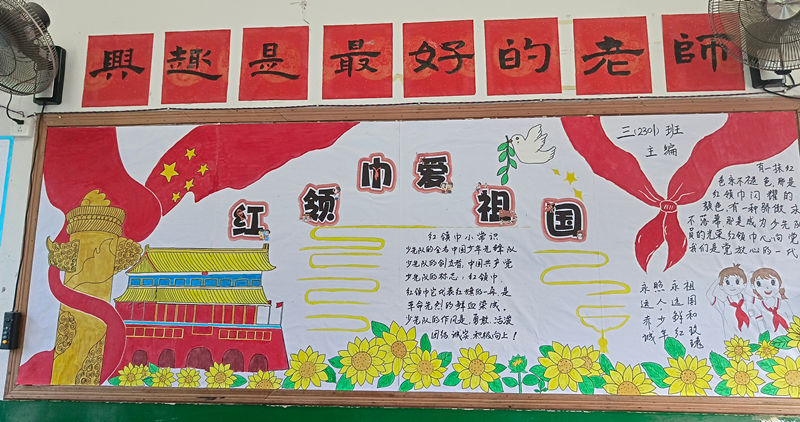 興趣是最好的老師
红领巾爱祖国
三(2301)班
主编
红领巾小常识
少先队的全名中国少年先锋队
少先队的创立者:中国共产党
少先队的标志:红领巾
红领巾它代表红旗的一角是
革命先烈的鲜血染成,
少先队的作风是:勇敢、活泼
团结、诚实、积极向上!
有一抹红
色永不褪色,那是
红领巾闪耀的
颜色,有一种骄傲永
不落幕那是成为少先队
员的光荣红领巾心向党
我们是党放心的一代
祖国和玫瑰
永远鲜红
照人少年
永远赤诚